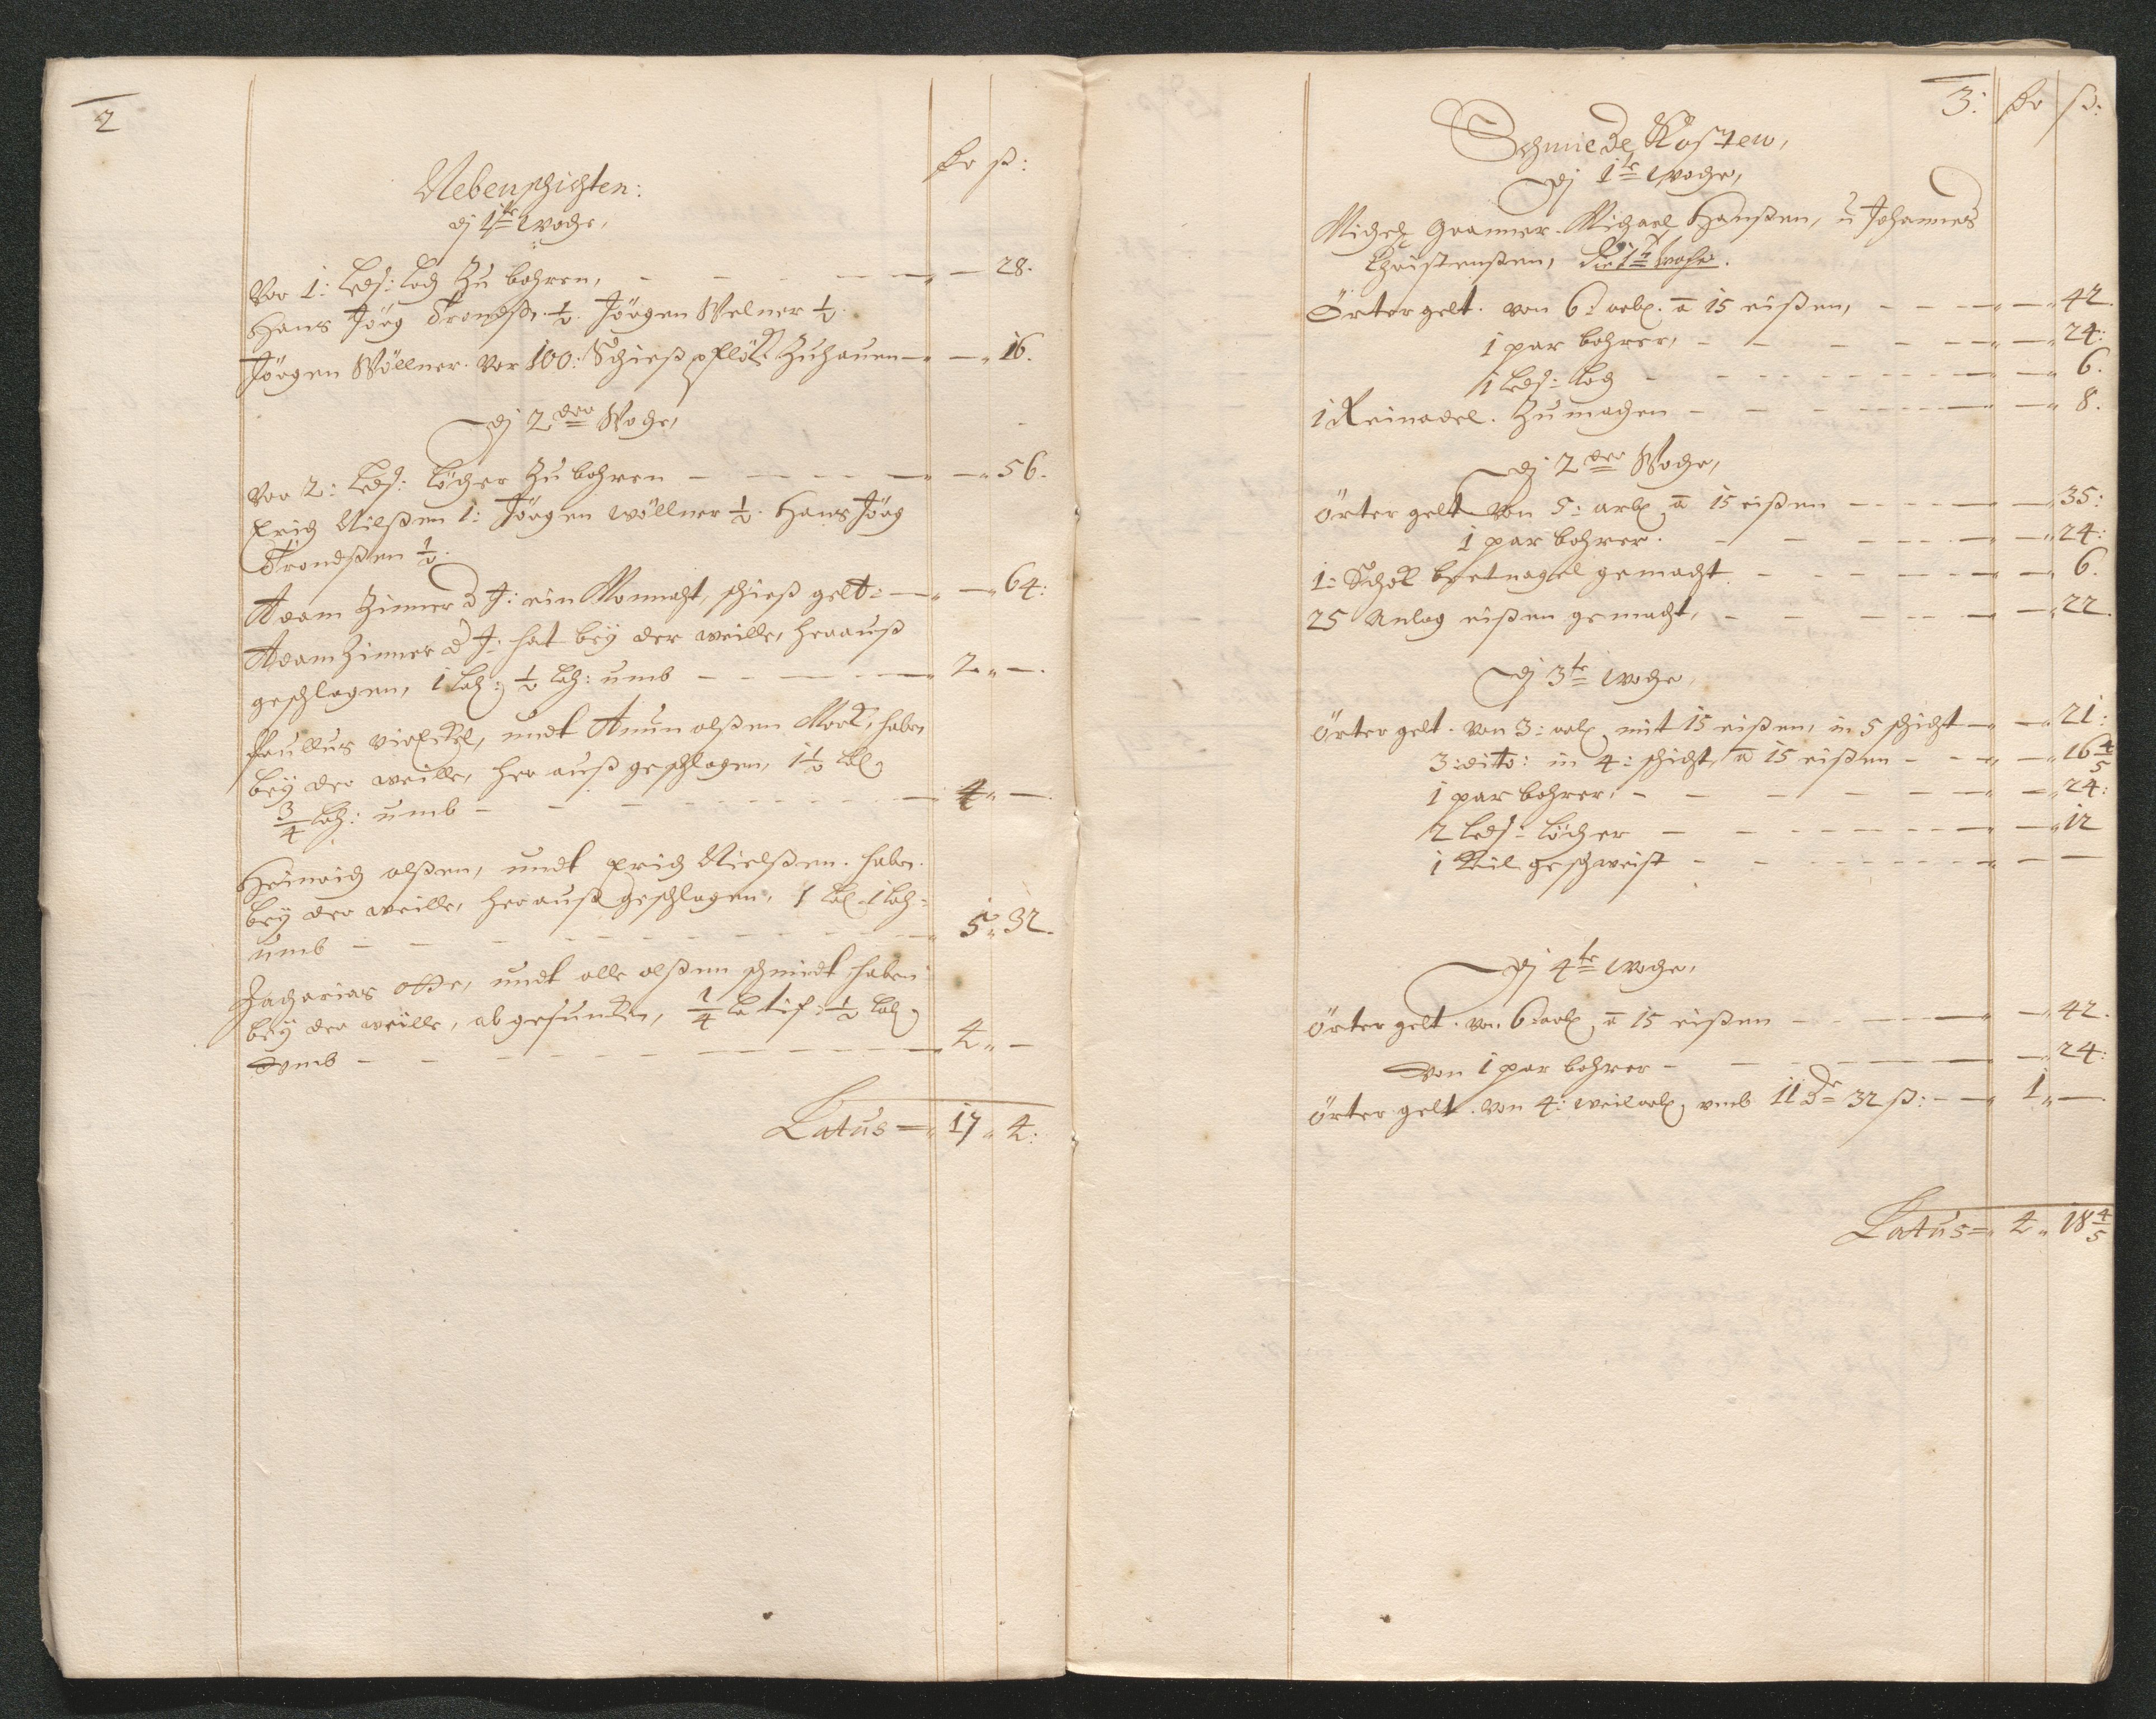 2
dr ß:
Nebenschichten:
dj 1te woche,
Vor 1: Leds: Loch Zu bohren, - - - - - 28.
Hans Jörg Trondß: ½. Jörgen Welner ½.
Jörgen Wöllner. Vor 100: Schieß pflöck Zuhauen - - 16.
dj 2der Woche,
Vor 2: Leds: Löcher Zu bohren - - - - 56.
Erich Nilßen 1: Jörgen wöllner ½. Hans Jörg
Trondßen ½.
Adam Zinner d J: ein Monnaht, schieß gelt: - - 64:
Adam Zinner d J: hat bey der weille, herauß
geschlagen, 1 Lach: ½ Lach: umb - - - - 2 " -.
Paullus undt Amun olßen Mock, haben
bey der weille, her auß geschlagen, 1½ Lach
¾ Lach: umb - - - - - - 4 " -.
Heinrich olßen, undt Erich Nielßen. haben.
bey der weille, herauß geschlagen, 1 Lach 1 Lach:
umb - - - - - - 5 " 32.
Zacharias otte, undt olle olßen schmidt haben
bey der weille, ab gesuncken, ¼ La tif: ½ Lach
Vmb - - - - - - 4 " -
Latus = 17 " 4:
3: dr ß:
Schmiede Kosten,
Dj 1te woche,
Michel Granner. Michael Hanßen, u Johannes
Christenßen, die 1te woche.
Örter gelt. von 6: arb. a 15 eißen, - - - - 42.
1 par bohrer, - - - - - 24:
1 Leds: Loch - - - - - 6.
1 Reinadel. Zu machen - - - - 8.
Dj 2der Woche,
Örter gelt von 5: arb a 15 eißen - - - - 35:
1 par bohrer. - - - - - 24:
1: Schock bretnagel gemacht - - - - 6.
25 Anlag eißen gemacht, - - - - 22.
Dj 3te woche,
Örter gelt. von 3: arb mit 15 eißen, in 5 schicht - - 21:
3: dito: in 4: schicht, a 15 eißen - - - 16 4/5
1 par bohrer: - - - - - 24:
2 Leds: Löcher - - - - - 12
1 Keil geschweist - - - - - -
Dj 4te woche,
Örter gelt. von 6: arb a 15 eißen - - - 42.
von 1 par bohrer - - - - 24:
Örter gelt. von 4: weil arb vmb 11 dr 32 ß: - - 1 " -.
Latus = 4 " 18 4/5